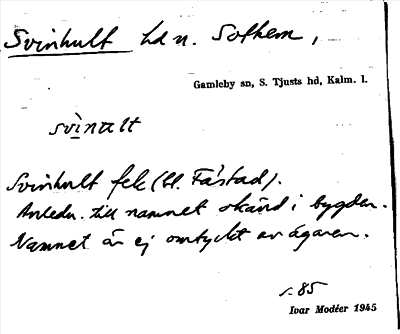 Svinhult hd n. Solhem,
Gamleby sn, S. Tjusts hd, Kalm. l.
svìnɑlt
Svinhult fek (bl. Fåstad).
Anledn. till namnet okänd i bygden.
Namnet är ej omtyckt av ägaren.
s. 85
Ivar Modéer 1945